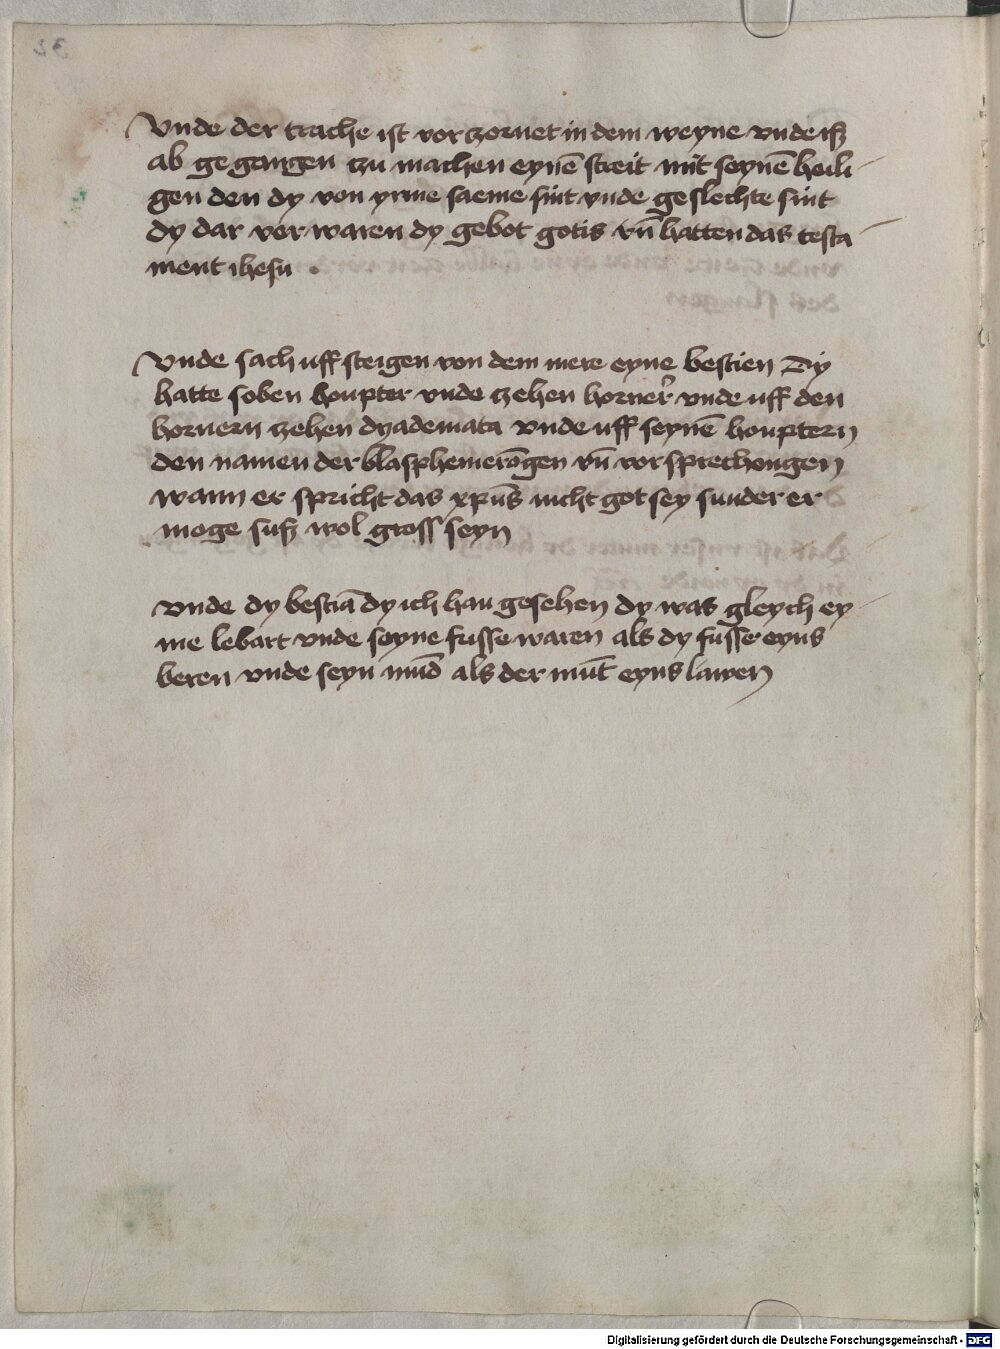 Vnde der trache ist vor zornet in dem weyne vnde iſz
ab ge gangen zu machen eynē streit mit seynē heili
gen den dy von yrme saeme sint vnde geslechte sint
dy dar vor waren dy gebot gotis vn̄ hatten das testa
ment ihesu .
Vnde sach uff steigen von dem mere eyne bestien Dy
hatte soben houpter vnde zehen horner vnde uff den
hornern zehen dyademata vnde uff seynē houptern
den namen der blasphemerōgen vn̄ vorsprechongen
wann er spricht das xpūs nicht got sey sunder er
moge suſz wol gross seyn
vnde dy bestiā dy ich han gesehen dy was gleych ey
me lebart vnde seyne fusse waren als dy fusse eyns
beren vnde seyn mūd als der mūt eyns lawen
Digitalisierung gefördert durch die Deutsche Forschungsgemeinschaft - DFG